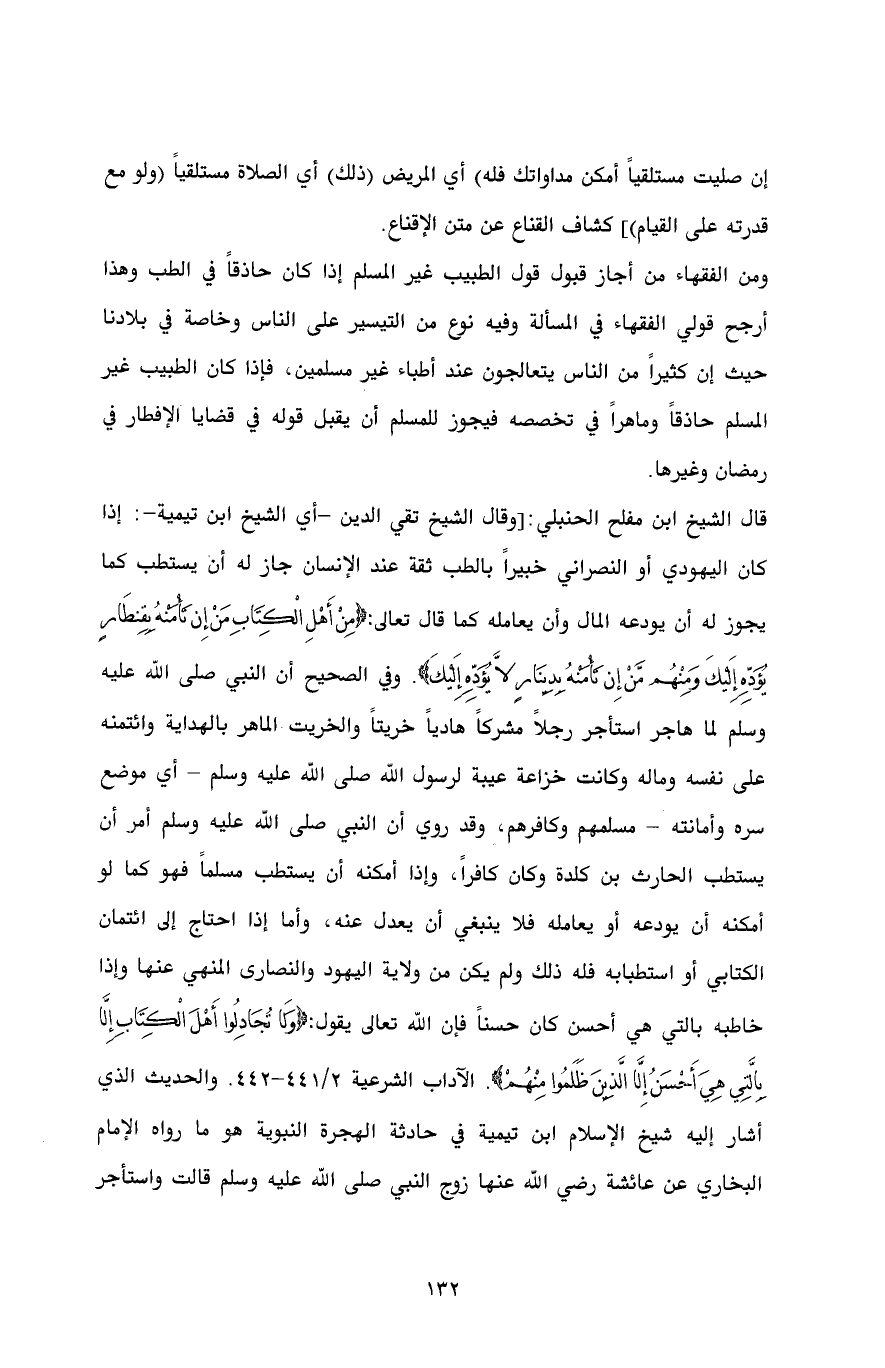 إن صليت مستلقياً أمكن مداواتك فله) أي المريض (ذلك) أي الصلاة مستلقياً (ولو مع
قدرته على القيام)] كشاف القناع عن متن الإقناع.
ومن الفقهاء من أجاز قبول قول الطبيب غير المسلم إذا كان حاذقاً في الطب وهذا
أرجح قولي الفقهاء في المسألة وفيه نوع من التيسير على الناس وخاصة في بلادنا
حيث إن كثيراً من الناس يتعالجون عند أطباء غير مسلمين، فإذا كان الطبيب غير
المسلم حاذقاً وماهراً في تخصصه فيجوز للمسلم أن يقبل قوله في قضايا الإفطار في
رمضان وغيرها.
قال الشيخ ابن مفلح الحنبلي:[وقال الشيخ تقي الدين –أي الشيخ ابن تيمية–: إذا
كان اليهودي أو النصراني خبيراً بالطب ثقة عند الإنسان جاز له أن يستطب كما
يجوز له أن يودعه المال وأن يعامله كما قال تعالى:﴿مِنْ أَهْلِ الْكِتَابِ مَنْ إِن تَأْمَنْهُ بِقِنطَارٍ
يُؤَدِّهِ إِلَيْكَ وَمِنْهُم مَّنْ إِن تَأْمَنْهُ بِدِينَارٍ لاَّ يُؤَدِّهِ إِلَيْكَ﴾. وفي الصحيح أن النبي صلى الله عليه
وسلم لما هاجر استأجر رجلاً مشركاً هادياً خريتاً والخريت الماهر بالهداية وائتمنه
على نفسه وماله وكانت خزاعة عيبة لرسول الله صلى الله عليه وسلم – أي موضع
سره وأمانته – مسلمهم وكافرهم، وقد روي أن النبي صلى الله عليه وسلم أمر أن
يستطب الحارث بن كلدة وكان كافراً، وإذا أمكنه أن يستطب مسلماً فهو كما لو
أمكنه أن يودعه أو يعامله فلا ينبغي أن يعدل عنه، وأما إذا احتاج إلى ائتمان
الكتابي أو استطبابه فله ذلك ولم يكن من ولاية اليهود والنصارى المنهي عنها وإذا
خاطبه بالتي هي أحسن كان حسناً فإن الله تعالى يقول:﴿وَلَا تُجَادِلُوا أَهْلَ الْكِتَابِ إِلَّا
بِالَّتِي هِيَ أَحْسَنُ إِلَّا الَّذِينَ ظَلَمُوا مِنْهُمْ﴾. الآداب الشرعية ٤٤١/٢-٤٤٢. والحديث الذي
أشار إليه شيخ الإسلام ابن تيمية في حادثة الهجرة النبوية هو ما رواه الإمام
البخاري عن عائشة رضي الله عنها زوج النبي صلى الله عليه وسلم قالت واستأجر
١٣٢